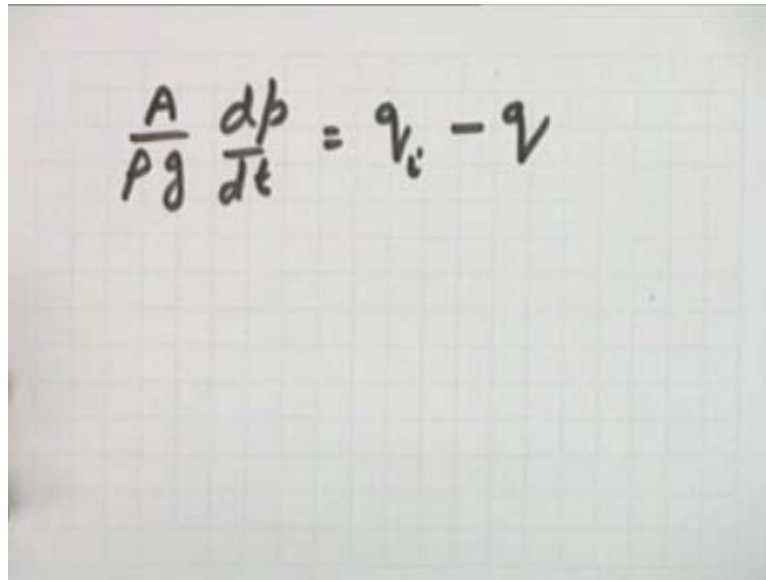 A/ρg dp/dt = qᵢ - q